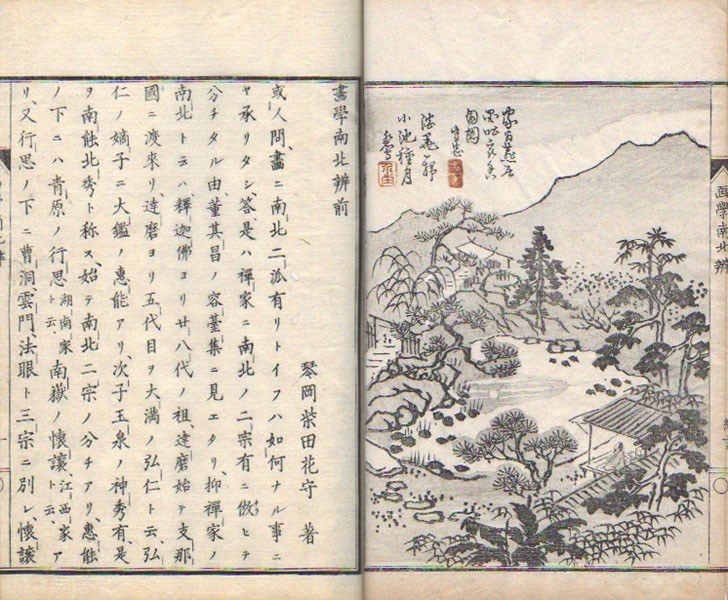 画學南北辨
畫學南北辨前
琴岡柴田花守 著
或人問、畫ニ南北二派有リトイフハ如何ナル事ニ
ヤ承リタシ、答、是ハ禪家ニ南北ノ二宗有ニ傚ヒテ
分チタル由、董其昌ノ容臺集ニ見エタリ、抑禪家ノ
南北トイハ釋迦佛ヨリ廿八代ノ祖、達磨始テ支那
國ニ渡來リ、達磨ヨリ五代目ヲ大滿ノ弘仁ト云、弘
仁ノ嫡子ニ大鑑ノ惠能アリ、次子玉泉ノ神秀有、是
ヲ南能北秀ト称ス、始テ南北二宗ノ分チアリ、惠能
ノ下ニハ青原ノ行思ト云、湖南家南嶽ノ懷讓ト云、江西家ア
リ、又行思ノ下ニ曹洞雲門法眼ト三宗ニ別レ懷讓